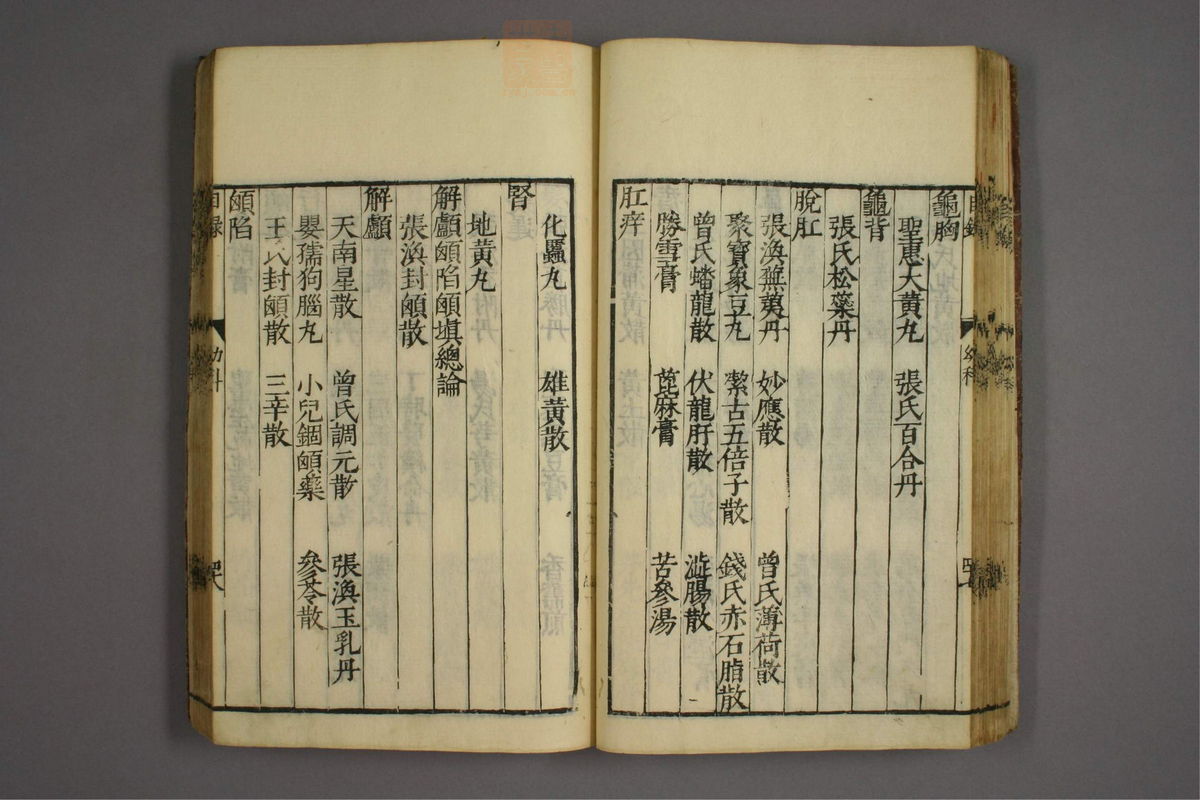 目錄 幼科
龜胸
聖惠大黃丸 張氏百合丹
龜背
張氏松蘂丹
脫肛
張渙蕪荑丹 妙應散 曾氏薄荷散
聚寶象豆丸 絜古五倍子散 錢氏赤石脂散
曾氏蟠龍散 伏龍肝散 澁腸散
勝雪膏 萞麻膏 苦參湯
肛痒
化䘌丸 雄黃散
腎
地黃丸
解顱䪿陷䪿塡總論
張渙封䪿散
解顱
天南星散 曾氏調元散 張渙玉乳丹
嬰孺狗腦丸 小兒錮䪿藥 參苓散
王氏封䪿散 三辛散
䪿陷
目錄 幼科